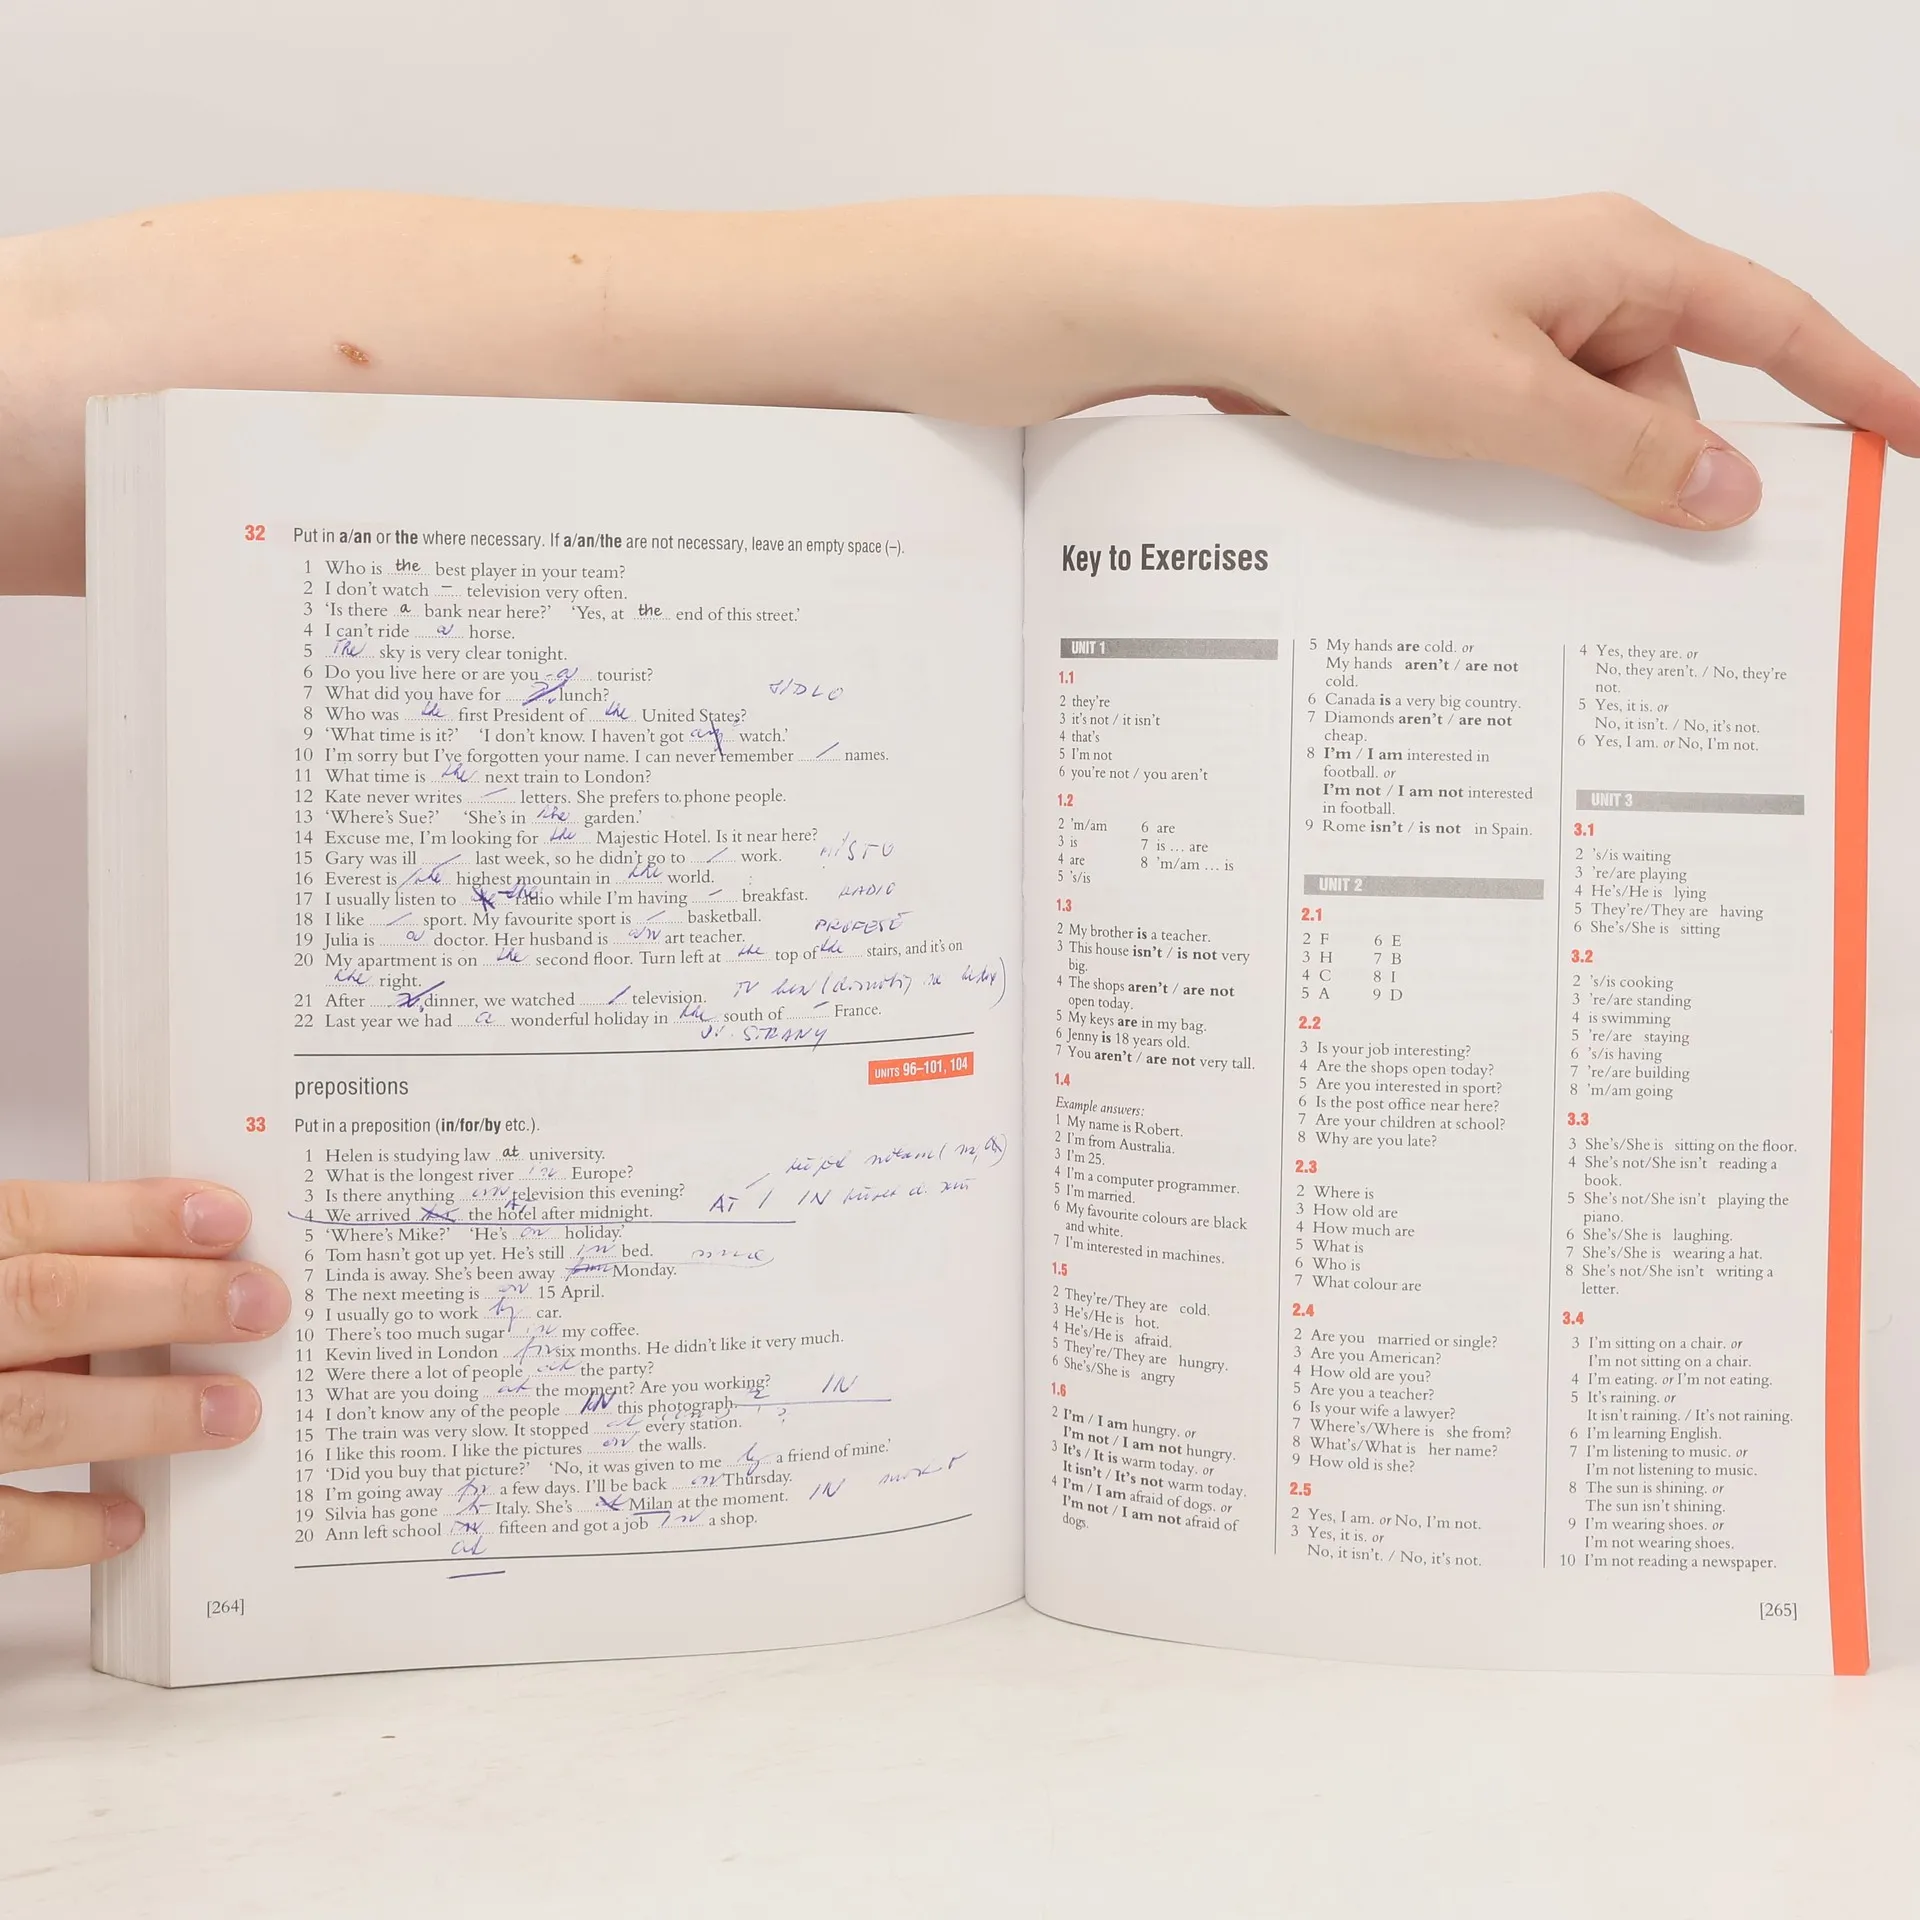 32 Put in a/an or the where necessary. If a/an/the are not necessary, leave an empty space (–).
1 Who is the best player in your team?
2 I don't watch – television very often.
3 'Is there a bank near here?' 'Yes, at the end of this street.'
4 I can't ride a horse.
5 The sky is very clear tonight.
6 Do you live here or are you a tourist?
7 What did you have for lunch?
8 Who was the first President of the United States?
9 'What time is it?' 'I don't know. I haven't got a watch.'
10 I'm sorry but I've forgotten your name. I can never remember / names.
11 What time is the next train to London?
12 Kate never writes – letters. She prefers to phone people.
13 'Where's Sue?' 'She's in the garden.'
14 Excuse me, I'm looking for the Majestic Hotel. Is it near here?
15 Gary was ill – last week, so he didn't go to – work.
16 Everest is the highest mountain in the world.
17 I usually listen to the radio while I'm having – breakfast. RADIO
18 I like – sport. My favourite sport is – basketball.
19 Julia is a doctor. Her husband is an art teacher.
20 My apartment is on the second floor. Turn left at the top of the stairs, and it's on
the right.
21 After dinner, we watched / television.
22 Last year we had a wonderful holiday in the south of – France.
STRANY
UNITS 96–101, 104
prepositions
33 Put in a preposition (in/for/by etc.).
1 Helen is studying law at university.
2 What is the longest river in Europe?
3 Is there anything on television this evening?
4 We arrived at the hotel after midnight. AT / IN
5 'Where's Mike?' 'He's on holiday.'
6 Tom hasn't got up yet. He's still in bed.
7 Linda is away. She's been away Monday.
8 The next meeting is on 15 April.
9 I usually go to work by car.
10 There's too much sugar in my coffee.
11 Kevin lived in London for six months. He didn't like it very much.
12 Were there a lot of people at the party?
13 What are you doing at the moment? Are you working?
14 I don't know any of the people IN this photograph. IN
15 The train was very slow. It stopped at every station. ?
16 I like this room. I like the pictures on the walls.
17 'Did you buy that picture?' 'No, it was given to me by a friend of mine.'
18 I'm going away for a few days. I'll be back on Thursday.
19 Silvia has gone to Italy. She's Milan at the moment. IN
20 Ann left school fifteen and got a job in a shop.
at
[264]
Key to Exercises
UNIT 1
1.1
2 they're
3 it's not / it isn't
4 that's
5 I'm not
6 you're not / you aren't
1.2
2 'm/am
3 is
4 are
5 's/is
6 are
7 is ... are
8 'm/am ... is
1.3
2 My brother is a teacher.
3 This house isn't / is not very
big.
4 The shops aren't / are not
open today.
5 My keys are in my bag.
6 Jenny is 18 years old.
7 You aren't / are not very tall.
1.4
Example answers:
1 My name is Robert.
2 I'm from Australia.
3 I'm 25.
4 I'm a computer programmer.
5 I'm married.
6 My favourite colours are black
and white.
7 I'm interested in machines.
1.5
2 They're/They are cold.
3 He's/He is hot.
4 He's/He is afraid.
5 They're/They are hungry.
6 She's/She is angry
1.6
2 I'm / I am hungry. or
I'm not / I am not hungry.
3 It's / It is warm today. or
It isn't / It's not warm today.
4 I'm / I am afraid of dogs. or
I'm not / I am not afraid of
dogs.
5 My hands are cold. or
My hands aren't / are not
cold.
6 Canada is a very big country.
7 Diamonds aren't / are not
cheap.
8 I'm / I am interested in
football. or
I'm not / I am not interested
in football.
9 Rome isn't / is not in Spain.
UNIT 2
2.1
2 F
3 H
4 C
5 A
6 E
7 B
8 I
9 D
2.2
3 Is your job interesting?
4 Are the shops open today?
5 Are you interested in sport?
6 Is the post office near here?
7 Are your children at school?
8 Why are you late?
2.3
2 Where is
3 How old are
4 How much are
5 What is
6 Who is
7 What colour are
2.4
2 Are you married or single?
3 Are you American?
4 How old are you?
5 Are you a teacher?
6 Is your wife a lawyer?
7 Where's/Where is she from?
8 What's/What is her name?
9 How old is she?
2.5
2 Yes, I am. or No, I'm not.
3 Yes, it is. or
No, it isn't. / No, it's not.
4 Yes, they are. or
No, they aren't. / No, they're
not.
5 Yes, it is. or
No, it isn't. / No, it's not.
6 Yes, I am. or No, I'm not.
UNIT 3
3.1
2 's/is waiting
3 're/are playing
4 He's/He is lying
5 They're/They are having
6 She's/She is sitting
3.2
2 's/is cooking
3 're/are standing
4 is swimming
5 're/are staying
6 's/is having
7 're/are building
8 'm/am going
3.3
3 She's/She is sitting on the floor.
4 She's not/She isn't reading a
book.
5 She's not/She isn't playing the
piano.
6 She's/She is laughing.
7 She's/She is wearing a hat.
8 She's not/She isn't writing a
letter.
3.4
3 I'm sitting on a chair. or
I'm not sitting on a chair.
4 I'm eating. or I'm not eating.
5 It's raining. or
It isn't raining. / It's not raining.
6 I'm learning English.
7 I'm listening to music. or
I'm not listening to music.
8 The sun is shining. or
The sun isn't shining.
9 I'm wearing shoes. or
I'm not wearing shoes.
10 I'm not reading a newspaper.
[265]